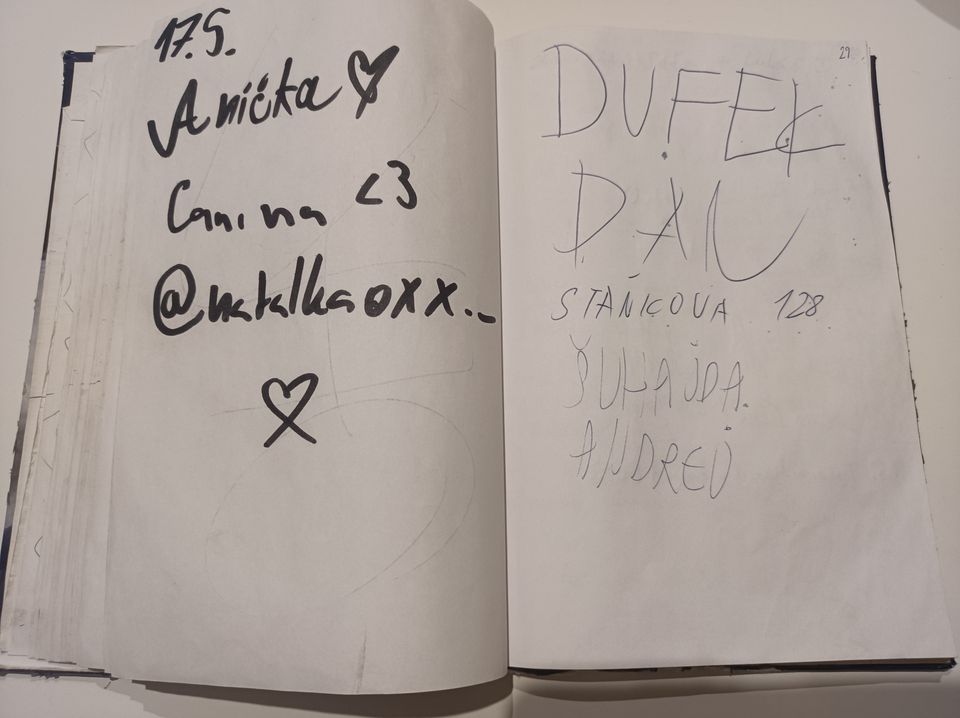 17.5.
Anička
Canina <3
@natalkaoxx._
29
DUFEK
DAN
STAŇKOVA 128
ŠUHAJDA
ANDREJ